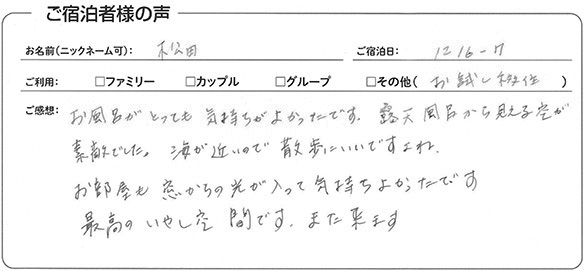 ご宿泊者様の声
お名前(ニックネーム可): 松田 ご宿泊日: 12 16-17
ご利用: □ファミリー □カップル □グループ □その他( お試し移住 )
ご感想: お風呂がとっても気持ちがよかったです。露天風呂から見える空が
素敵でした。海が近いので散歩にいいですよね。
お部屋も窓からの光が入って気持ちよかったです
最高のいやし空間です。また来ます